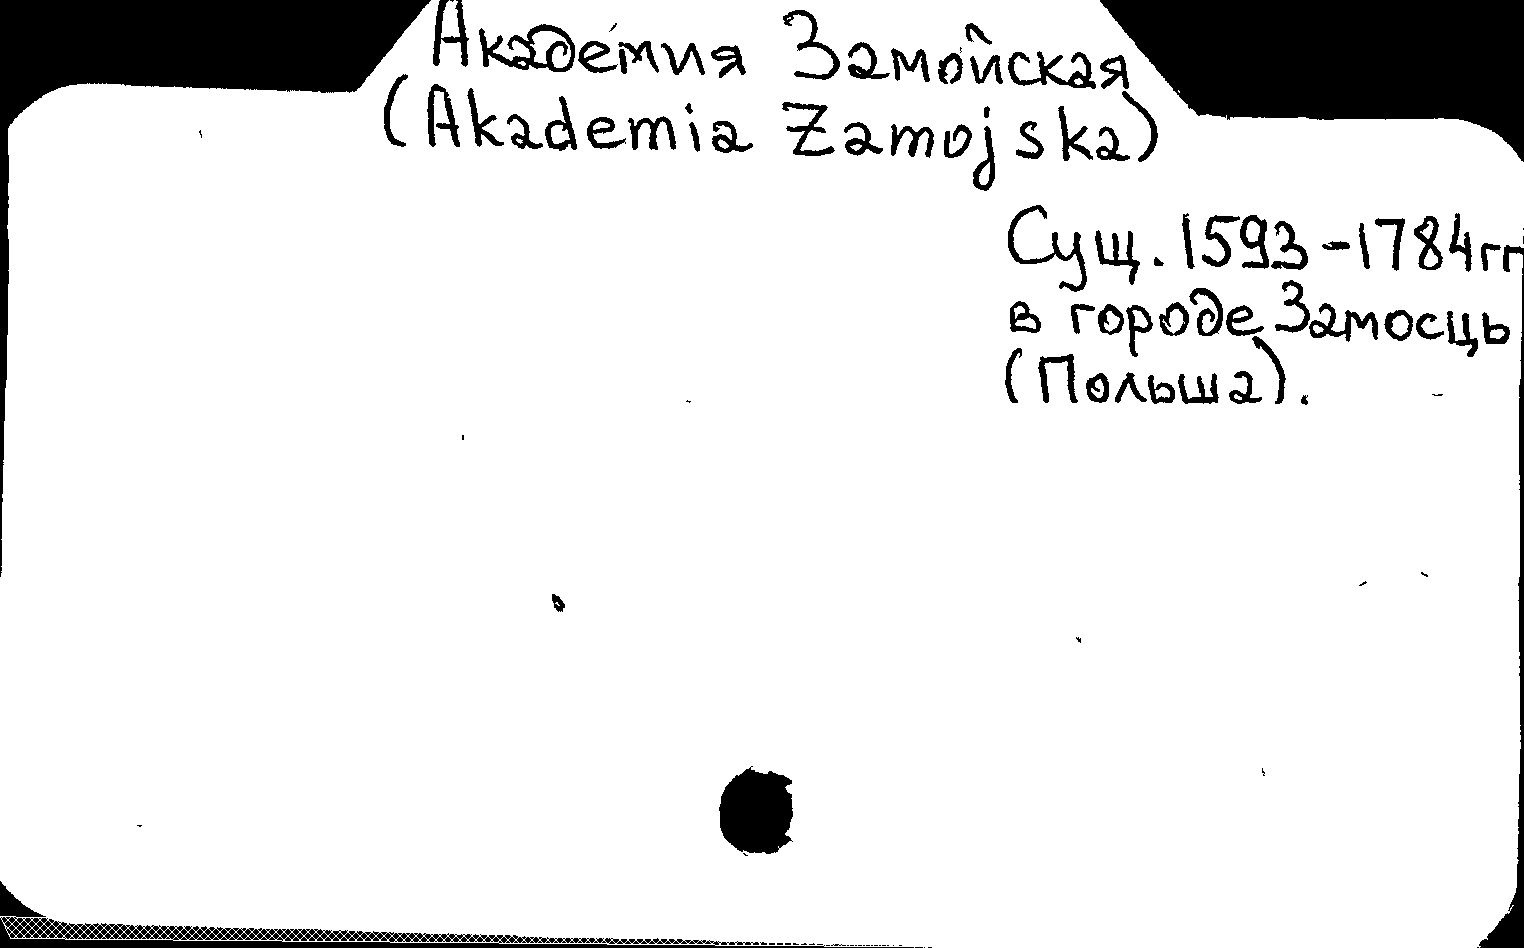 Академия Замойская
(Akademia Zamojska)
Сущ. 1593-1784гг
в городе Замосць
(Польша).